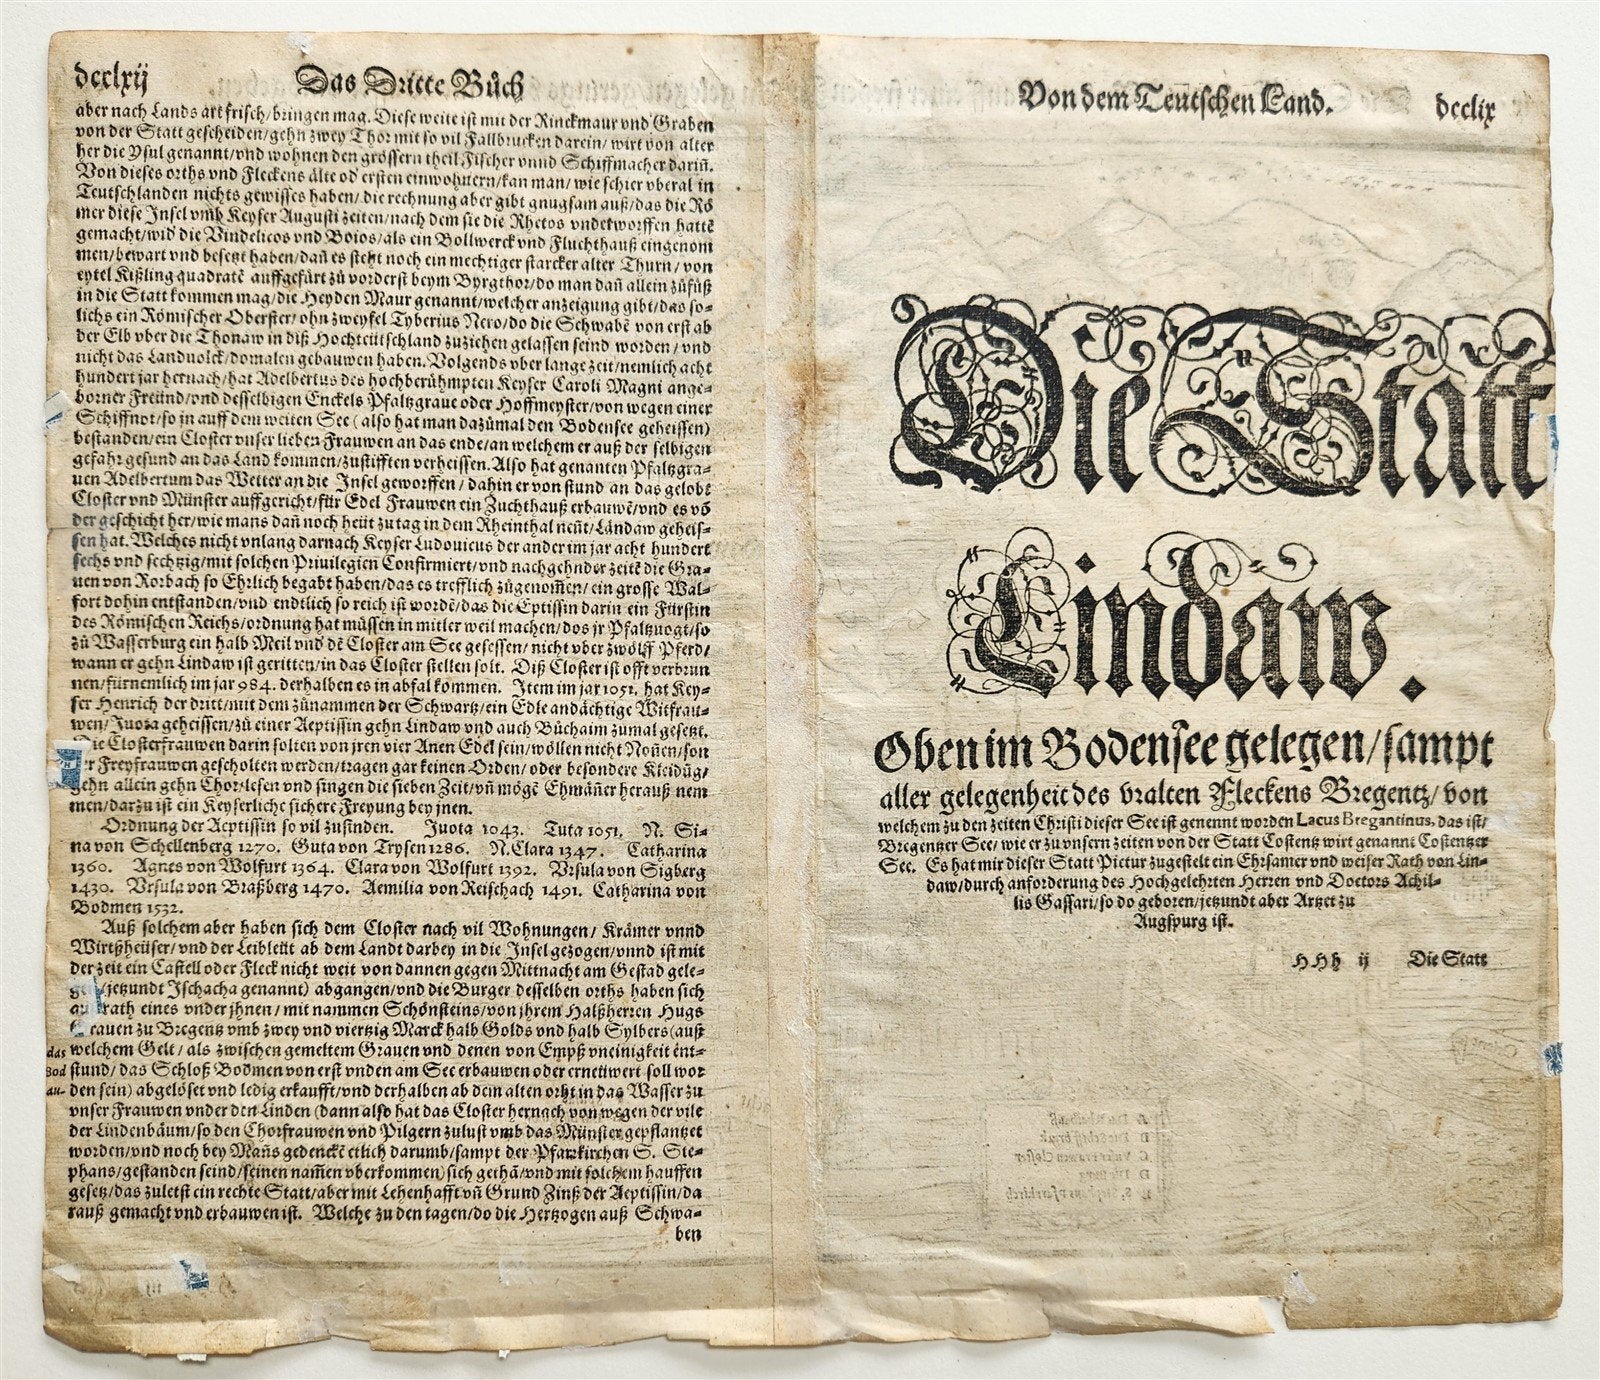 dcclxij
Das Dritte Bůch
aber nach Lands art frisch/bringen mag. Diese weite ist mit der Rinckmaur vnd Graben
von der Statt gescheiden/gehn zwey Thor mit so vil Fallbrucken darein/wirt von alter
her die Ysul genannt/vnd wohnen den grössern theil Fischer vnnd Schiffmacher dariñ.
Von dieses orths vnd Fleckens älte od' ersten einwohnern/kan man/wie schier vberal in
Teutschlanden nichts gewisses haben/die rechnung aber gibt gnugsam auß/das die Rö
mer diese Insel vmb Keyser Augusti zeiten/nach dem sie die Rhetos vnderworffen hattē
gemacht/wid' die Vindelicos vnd Boios/als ein Bollwerck vnd Fluchthauß eingenom
men/bewart vnd besetzt haben/dañ es steht noch ein mechtiger starcker alter Thurn/von
eytel Kißling quadratē auffgefürt zů vorderst beym Byrgthor/do man dañ allein zůfůß
in die Statt kommen mag/die Heyden Maur genannt/welcher anzeigung gibt/das so-
lichs ein Römischer Oberster/ohn zweyfel Tyberius Nero/do die Schwabē von erst ab
der Elb vber die Thonaw in diß Hochteütschland zůziehen gelassen seind worden/vnd
nicht das Landuolck/domalen gebauwen haben. Volgends vber lange zeit/nemlich acht
hundert jar hernach/hat Adelbertus des hochberühmpten Keyser Caroli Magni ange-
borner Freünd/vnd desselbigen Enckels Pfaltzgraue oder Hoffmeyster/von wegen einer
Schiffnot/so jn auff dem weiten See (also hat man dazůmal den Bodensee geheissen)
bestanden/ein Closter vnser lieben Frauwen an das ende/an welchem er auß der selbigen
gefahr gesund an das Land kommen/zůstifften verheissen. Also hat genanten Pfaltzgra-
uen Adelbertum das Wetter an die Insel geworffen/dahin er von stund an das gelobt
Closter vnd Münster auffgericht/für Edel Frauwen ein Zuchthauß erbauwē/vnd es vō
der geschicht her/wie mans dañ noch heüt zů tag in dem Rheinthal neñt/Ländaw geheis-
sen hat. Welches nicht vnlang darnach Keyser Ludouicus der ander im jar acht hundert
sechs vnd sechtzig/mit solchen Priuilegien Confirmiert/vnd nachgehnder zeitē die Gra-
uen von Rorbach so Ehrlich begabt haben/das es trefflich zůgenom̃en/ein grosse Wal-
fort dohin entstanden/vnd endtlich so reich ist wordē/das die Eptissin darin ein Fürstin
des Römischen Reichs/ordnung hat müssen in mitler weil machen/dos jr Pfaltzuogt/so
zů Wasserburg ein halb Meil vnd dē Closter am See gesessen/nicht vber zwölff Pferd/
wann er gehn Lindaw ist geritten/in das Closter stellen solt. Diß Closter ist offt verbrun
nen/fürnemlich im jar 984. derhalben es in abfal kommen. Item im jar 1051. hat Key-
ser Henrich der dritt/mit dem zůnammen der Schwartz/ein Edle andächtige Witfrau-
wen/Juota geheissen/zů einer Aeptissin gehn Lindaw vnd auch Bůchaim zumal gesetzt.
Die Closterfrauwen darin solten von jren vier Anen Edel sein/wöllen nicht Noñen/son
der Freyfrauwen gescholten werden/tragen gar keinen Orden/oder besondere Kleidūg/
gehn allein gehn Chor/lesen vnd singen die sieben Zeit/vñ mögē Ehmäñer herauß nem
men/darzů ist ein Keyserliche sichere Freyung bey jnen.
Ordnung der Aeptissin so vil zufinden. Juota 1043. Tuta 1051. N. Si-
na von Schellenberg 1270. Guta von Trysen 1286. N. Clara 1347. Catharina
1360. Agnes von Wolfurt 1364. Clara von Wolfurt 1392. Vrsula von Sigberg
1430. Vrsula von Braßberg 1470. Aemilia von Reischach 1491. Catharina von
Bodmen 1532.
Auß solchem aber haben sich dem Closter nach vil Wohnungen/Krämer vnnd
Wirtßheüser/vnd der Leibleüt ab dem Landt darbey in die Insel gezogen/vnnd ist mit
der zeit ein Castell oder Fleck nicht weit von dannen gegen Mittnacht am Gestad gele-
gen/(jetzundt Jschacha genannt) abgangen/vnd die Burger desselben orths haben sich
auß rath eines vnder jhnen/mit nammen Schönsteins/von jhrem Halßherren Hugs
Grauen zu Bregentz vmb zwey vnd viertzig Marck halb Golds vnd halb Sylbers (auß
das welchem Gelt/als zwischen gemeltem Grauen vnd denen von Empß vneinigkeit ent-
Bod stund/das Schloß Bodmen von erst vnden am See erbauwen oder ernewert soll wor
au- den sein) abgelöset vnd ledig erkaufft/vnd derhalben ab dem alten orht in das Wasser zu
vnser Frauwen vnder den Linden (dann also hat das Closter hernach von wegen der vile
der Lindenbäum/so den Chorfrauwen vnd Pilgern zulust vmb das Münster gepflantzet
worden/vnd noch bey Mañs gedenckē etlich darumb/sampt der Pfarrkirchen S. Ste-
phans/gestanden seind/seinen nam̃en vberkommen) sich gethā/vnd mit solchem hauffen
gesetz/das zuletst ein rechte Statt/aber mit Lehenhafft vñ Grund Zinß der Aeptissin/da
rauß gemacht vnd erbauwen ist. Welche zu den tagen/do die Hertzogen auß Schwa-
ben
Von dem Teutschen Land.
dcclix
Die Statt
Lindaw.
Oben im Bodensee gelegen/sampt
aller gelegenheit des vralten Fleckens Bregentz/von
welchem zu den zeiten Christi dieser See ist genennt worden Lacus Bregantinus, das ist/
Bregentzer See/wie er zu vnsern zeiten von der Statt Costentz wirt genannt Costentzer
See. Es hat mir dieser Statt Pictur zugestelt ein Ehrsamer vnd weiser Rath von Lin-
daw/durch anforderung des Hochgelehrten Herren vnd Doctors Achil-
lis Gassari/so do geboren/jetzundt aber Artzet zu
Augspurg ist.
HHh ij Die Statt